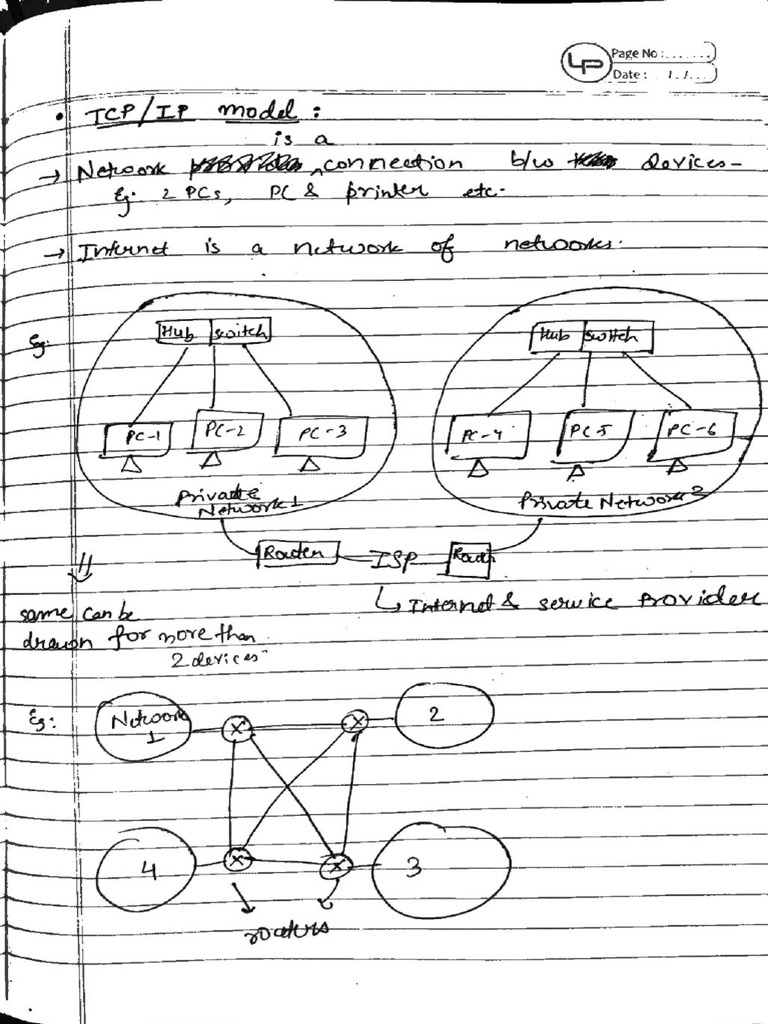 LP Page No :.......
Date : / /...
• TCP/IP model :
is a
→ Network connection b/w devices-
Eg: 2 PCs, PC & printer etc.
→ Internet is a network of networks.
Eg:
Hub switch
Hub switch
PC-1 PC-2 PC-3
PC-4 PC-5 PC-6
Private Network 1
Private Network 2
Router ISP
↳ Internet & service Provider
same can be
drawn for more than
2 devices
Eg: Network 1
2
4
3
routers